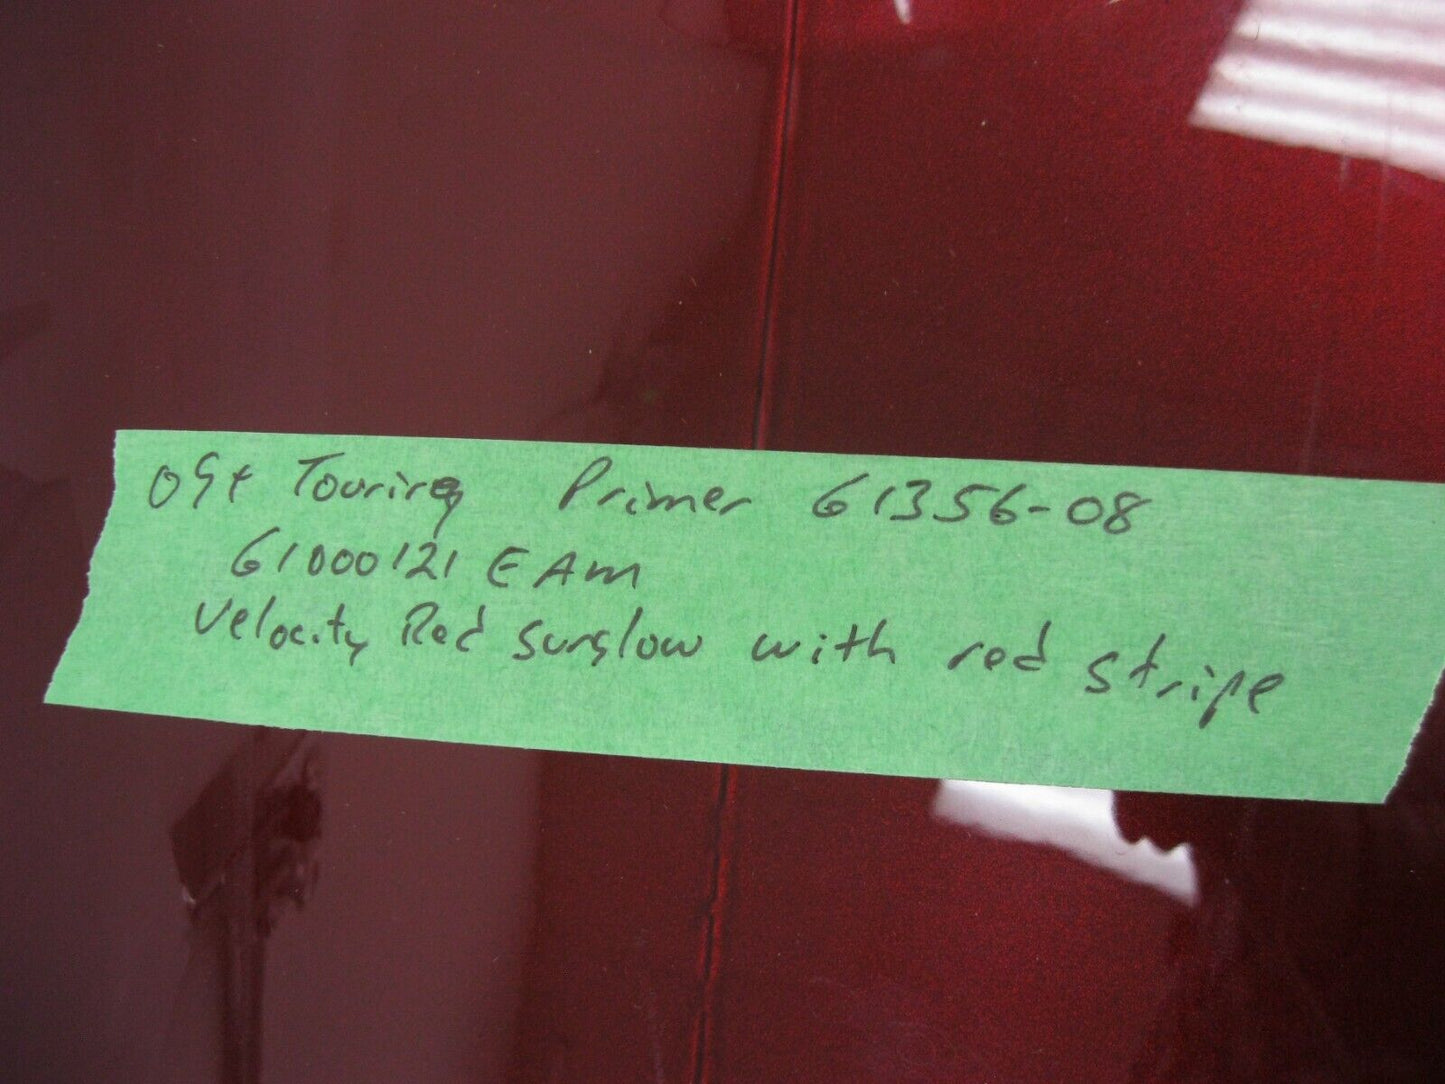 09+ Touring Primer 61356-08
61000121 EAM
Velocity Red sunglow with red stripe